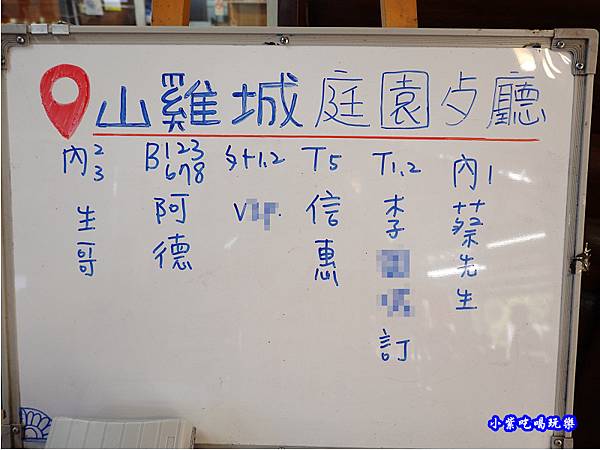 山雞城庭園歺廳
內 2 3 生哥
B 123 678 阿德
外1,2 V
T5 信惠
T1,2 李 訂
內1 蔡先生
小紫吃喝玩樂